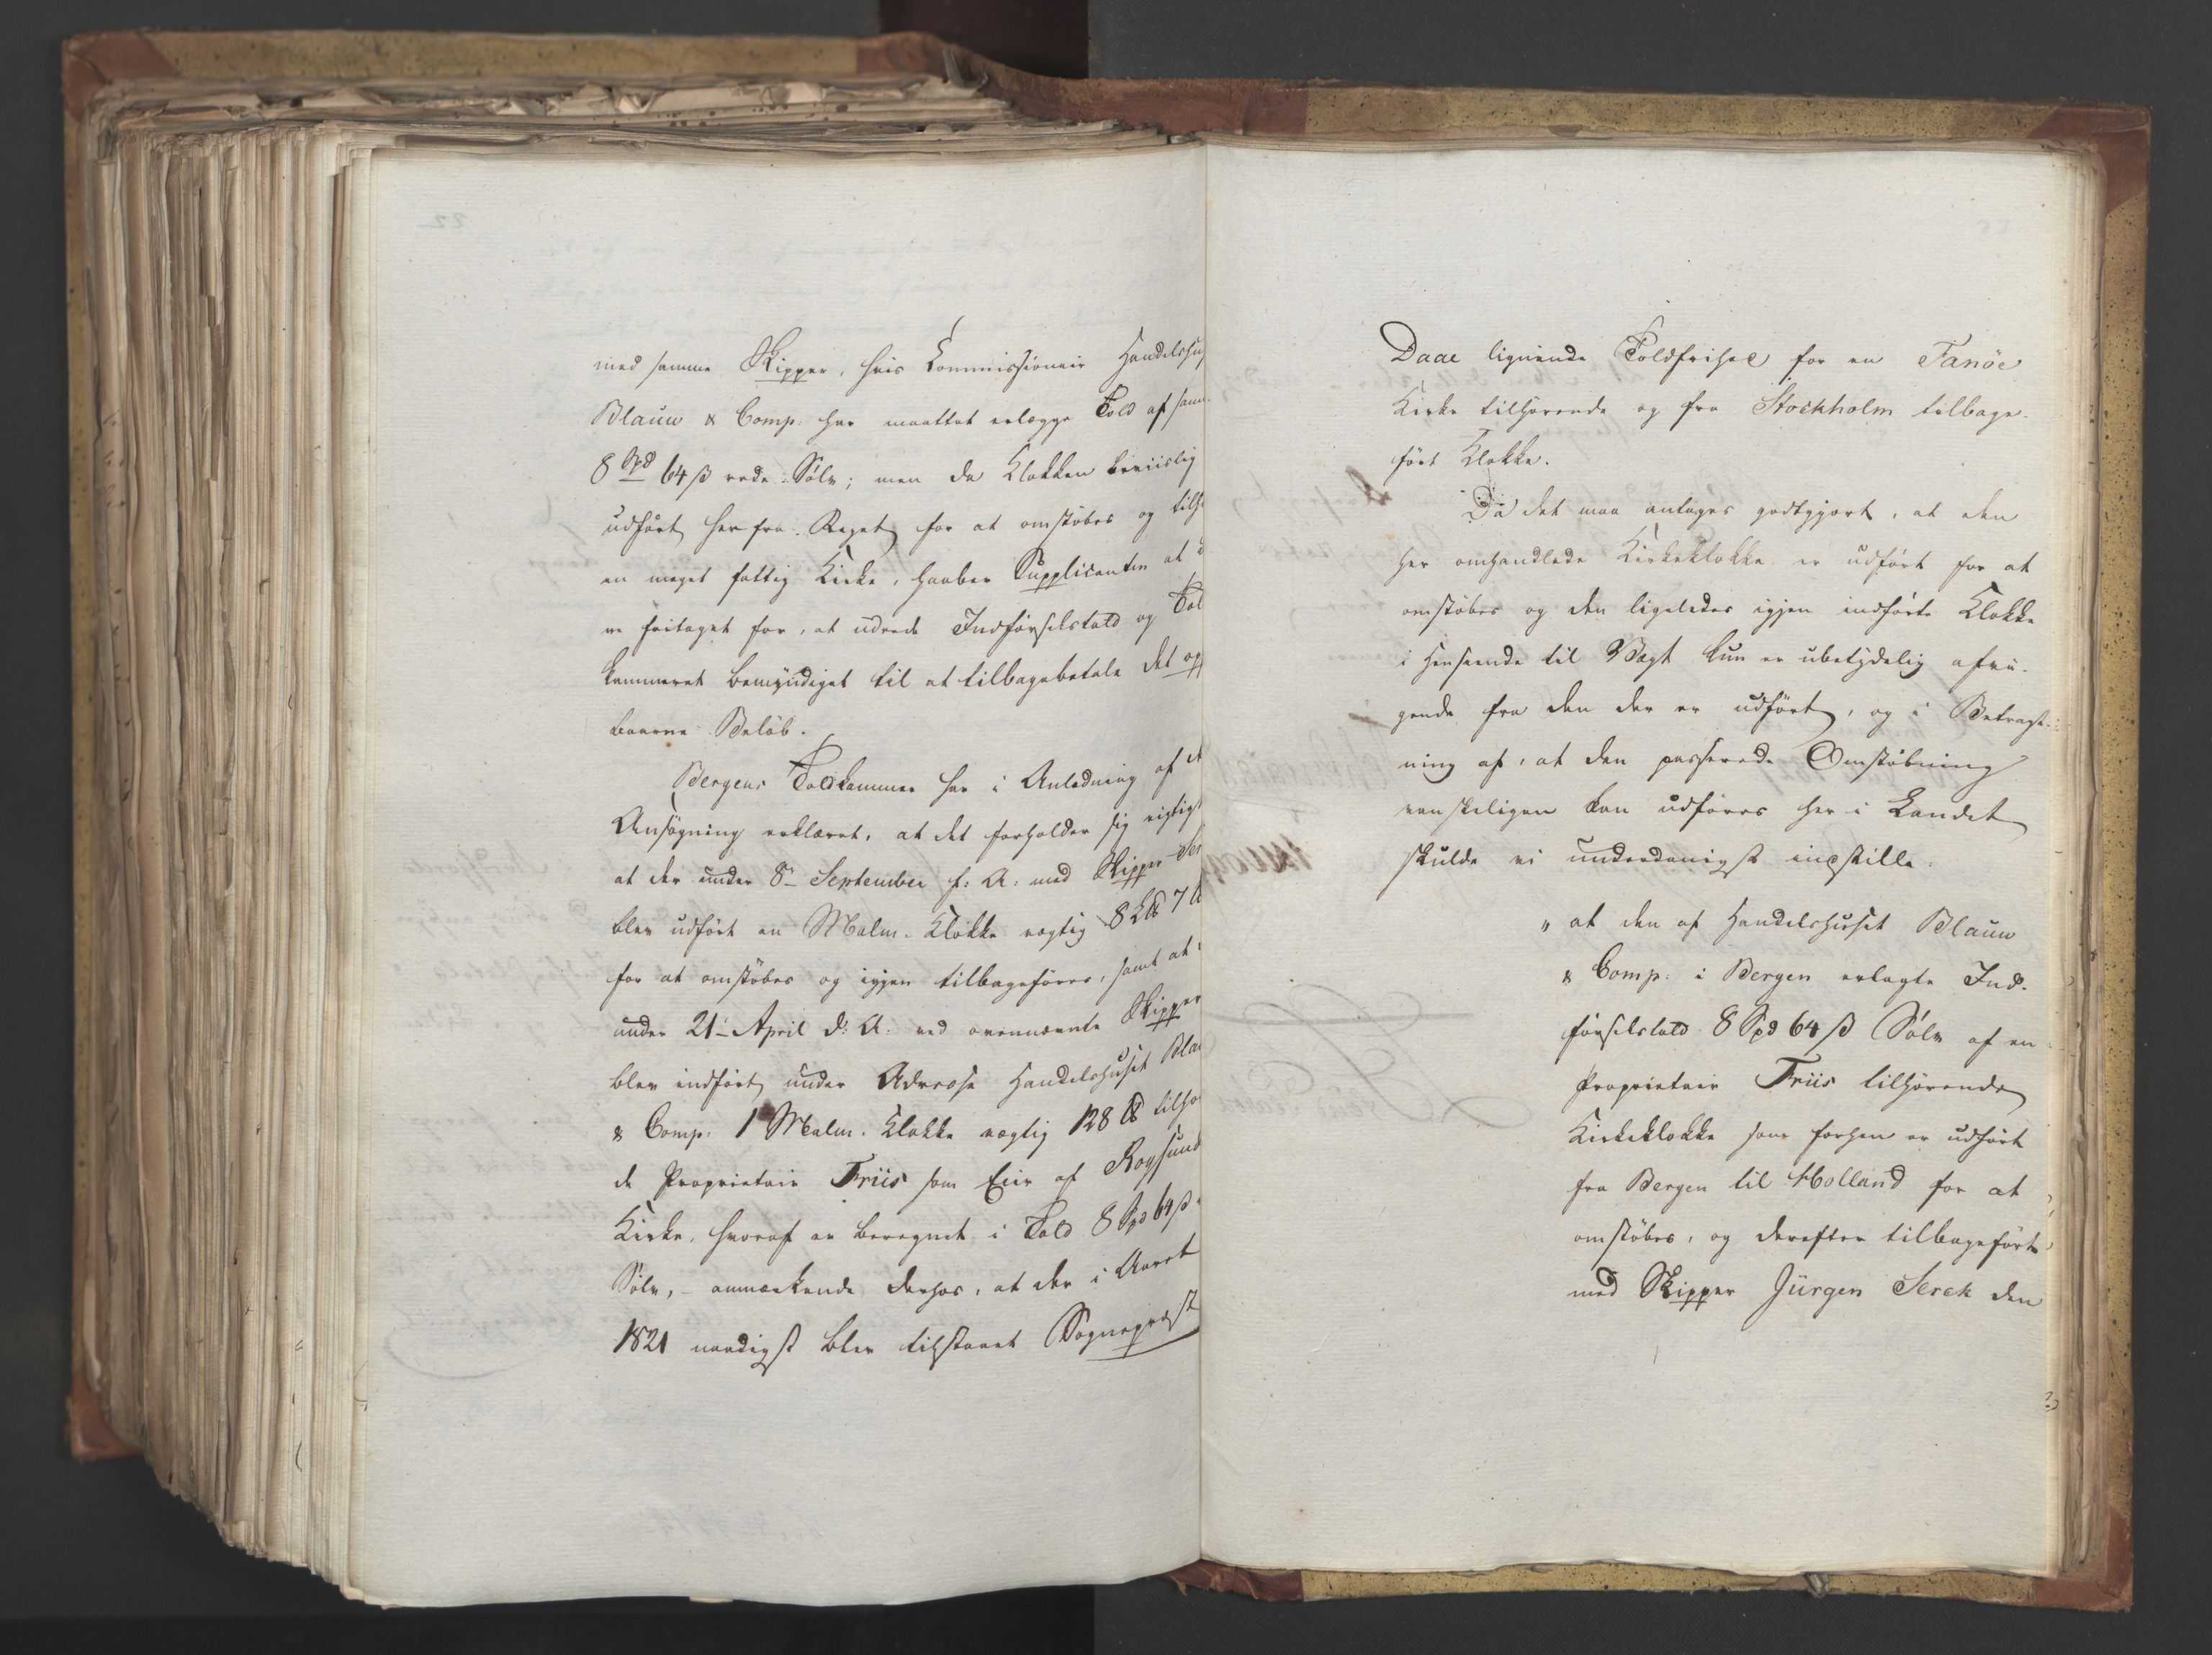 med samme Skipper, hvis Commissionair Handelshus
Blauw & Comp: har maattet erlægge Told af sam-
8 Spd 64 ß rede Sølv; men da Klokken beviislig
udført her fra Riget for at omstøbes og tilhø
en meget fattig Kirke, haaber Supplicanten at
re fritaget for, at udrede Indførselstold og Tol
kammeret bemyndiget til at tilbagebetale det op
baarne Beløb.
Bergens Toldkammer har i Anledning af
Ansøgning erklæret, at det forholder sig rigtigt
at der under 8de September f: A: med Skipper Ser
blev udført en Malm-Klokke vægtig 8 L℔ 7 ℔
for at omstøbes og igjen tilbageføres, samt at
under 21de April d: A: ved ovennævnte Skipper
blev indført under Adresse Handelshuset Bla
& Comp: 1 Malm-Klokke vægtig 128 ℔ tilhø
de Proprietair Friis som Eier af Rogsund
Kirke, hvoraf er beregnet i Told 8 Spd 64 ß
Sølv, - anmærkende derhos, at der i Aaret
1821 naadigst blev tilstaaet Sognepræst
Daae lignende Toldfrihed for en Fanöe
Kirke tilhørende og fra Stockholm tilbage-
ført Klokke.
Da det maa antages godtgjort, at den
her omhandlede Kirkeklokke er udført for at
omstøbes og den ligeledes igjen indførte Klokke
i Henseende til Vægt kun er ubetydelig afvi-
gende fra den der er udført, og i Betragt-
ning af, at den passerede Omstøbning
vanskeligen kan udføres her i Landet
skulde vi underdanigst indstille:
" at den af Handelshuset Blauw
& Comp: i Bergen erlagte Ind-
førselstold 8 Spd 64 ß Sølv af en
Proprietair Friis tilhørende
Kirkeklokke som forhen er udført
fra Bergen til Holland for at
omstøbes, og derefter tilbageført
med Skipper Jürgen Serck den